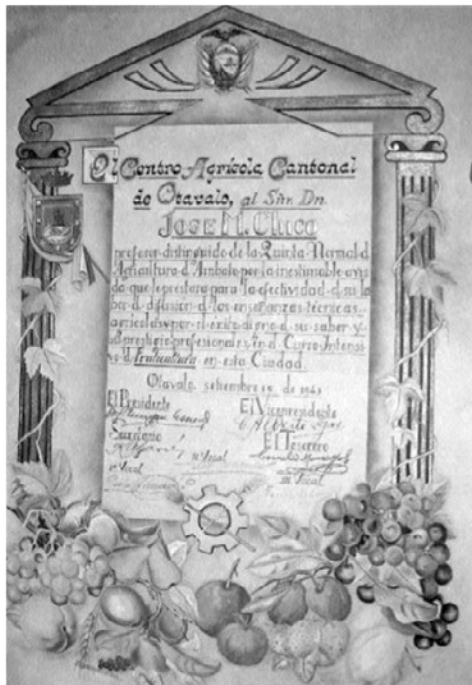 El Centro Agrícola Cantonal
de Otavalo, al Snr. Dn.
JOSE M. CHICO
profesor distinguido de la Quinta Normal d
Agricultura d Ambato por la inestimable ayu
da que le prestara para la efectividad d su la
bor d difusión d las enseñanzas técnicas
agrícolas y por el exito digno d su saber y
d prestigio profesionales, en el Curso Intensi
vo d Fruticultura en esta Ciudad.
Otavalo, setiembre de 194
El Presidente El Vicepresidente
Secretario El Tesorero
Vocal
Vocal Vocal